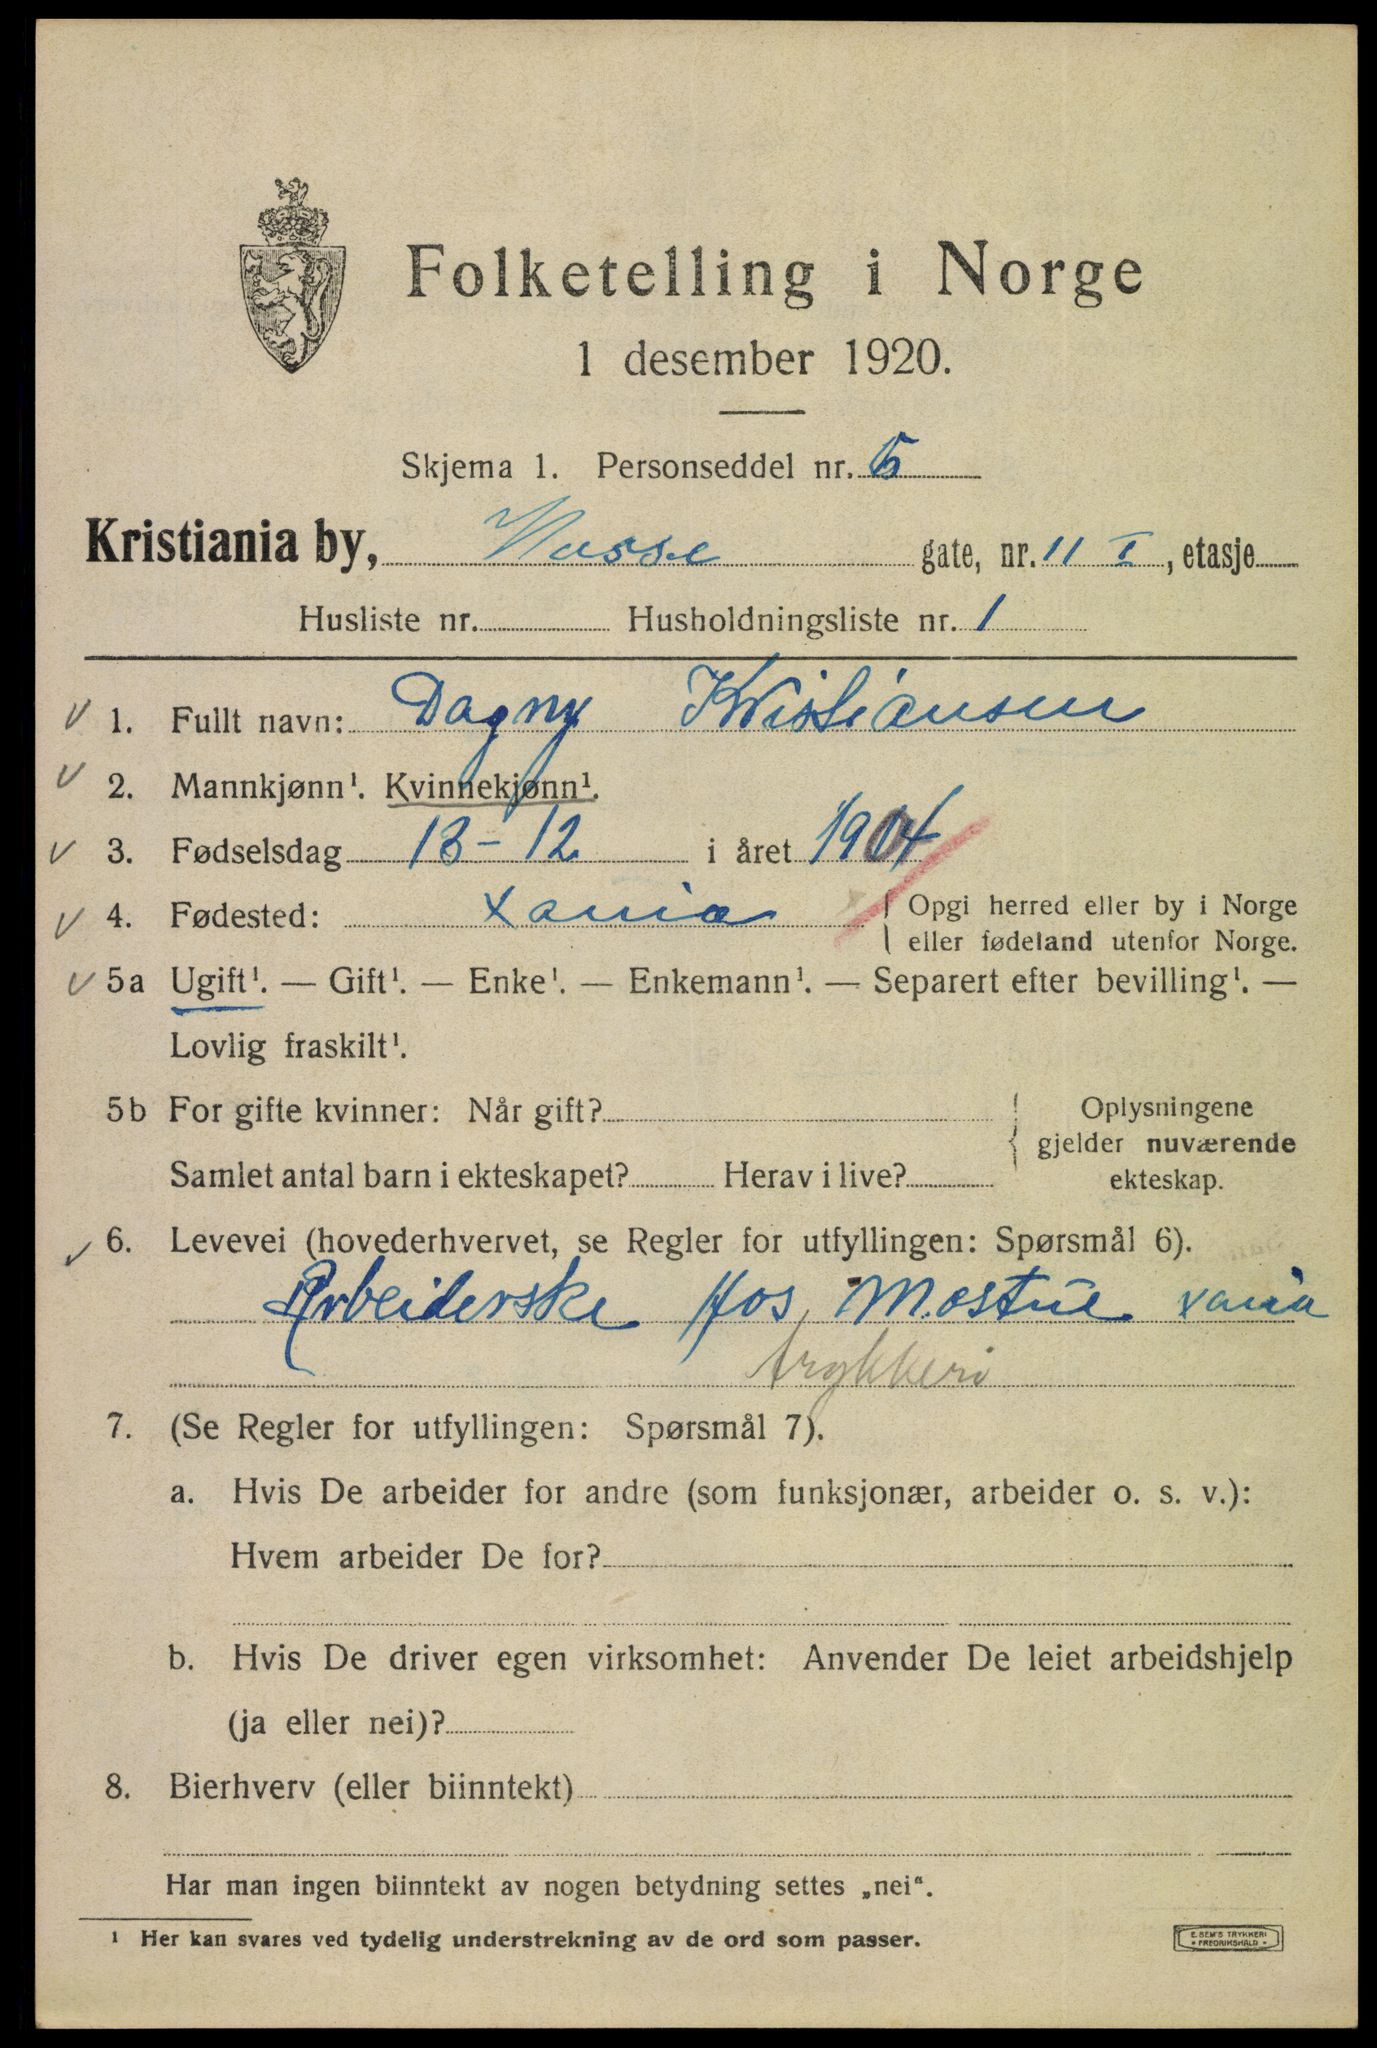 Folketelling i Norge
1 desember 1920.
Skjema 1. Personseddel nr. 5
Kristiania by, Hasse gate, nr. 11 I, etasje
Husliste nr. Husholdningsliste nr. 1
1. Fullt navn: Dagny Kristiansen
2. Mannkjønn¹. Kvinnekjønn¹.
3. Fødselsdag 13-12 i året 1904
4. Fødested: Xania { Opgi herred eller by i Norge
eller fødeland utenfor Norge.
5a Ugift¹. — Gift¹. — Enke¹. — Enkemann¹. — Separert efter bevilling¹. —
Lovlig fraskilt¹.
5b For gifte kvinner: Når gift?
Samlet antal barn i ekteskapet? Herav i live?
{ Oplysningene
gjelder nuværende
ekteskap.
6. Levevei (hovederhvervet, se Regler for utfyllingen: Spørsmål 6).
Arbeiderske Hos Mostue Xania
trykkeri
7. (Se Regler for utfyllingen: Spørsmål 7).
a. Hvis De arbeider for andre (som funksjonær, arbeider o. s. v.):
Hvem arbeider De for?
b. Hvis De driver egen virksomhet: Anvender De leiet arbeidshjelp
(ja eller nei)?
8. Bierhverv (eller biinntekt)
Har man ingen biinntekt av nogen betydning settes „nei“.
¹ Her kan svares ved tydelig understrekning av de ord som passer.
E. SEM'S TRYKKERI
• FREDRIKSHALD •